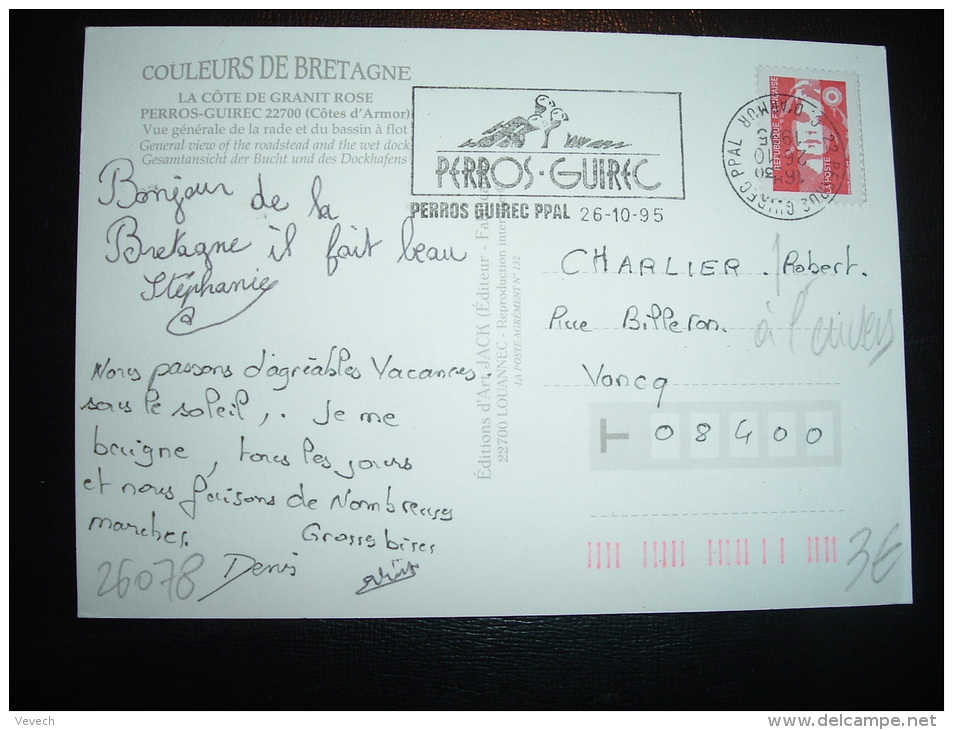 COULEURS DE BRETAGNE
LA CÔTE DE GRANIT ROSE
PERROS-GUIREC 22700 (Côtes d'Armor)
Vue générale de la rade et du bassin à flot
General view of the roadstead and the wet dock
Gesamtansicht der Bucht und des Dockhafens
PERROS-GUIREC
PERROS GUIREC PPAL 26-10-95
16H30
26-10
1995
GUIREC PPAL
D'ARMOR
RÉPUBLIQUE FRANÇAISE
LA POSTE
Bonjour de la
Bretagne il fait beau
Stéphanie
Nous passons d'agréables Vacances
sous le soleil, . Je me
baigne, tous les jours
et nous faisons de Nombreuses
marches.
Grosses bises
Denis
Éditions d'Art JACK (Éditeur -
22700 LOUANNEC - Reproduction
LA POSTE AGRÉMENT N° 132
CHARLIER . Robert.
Rue Billeron.
Voncq
T 08400
à l'envers
26078
3€
Vevech
www.delcampe.net